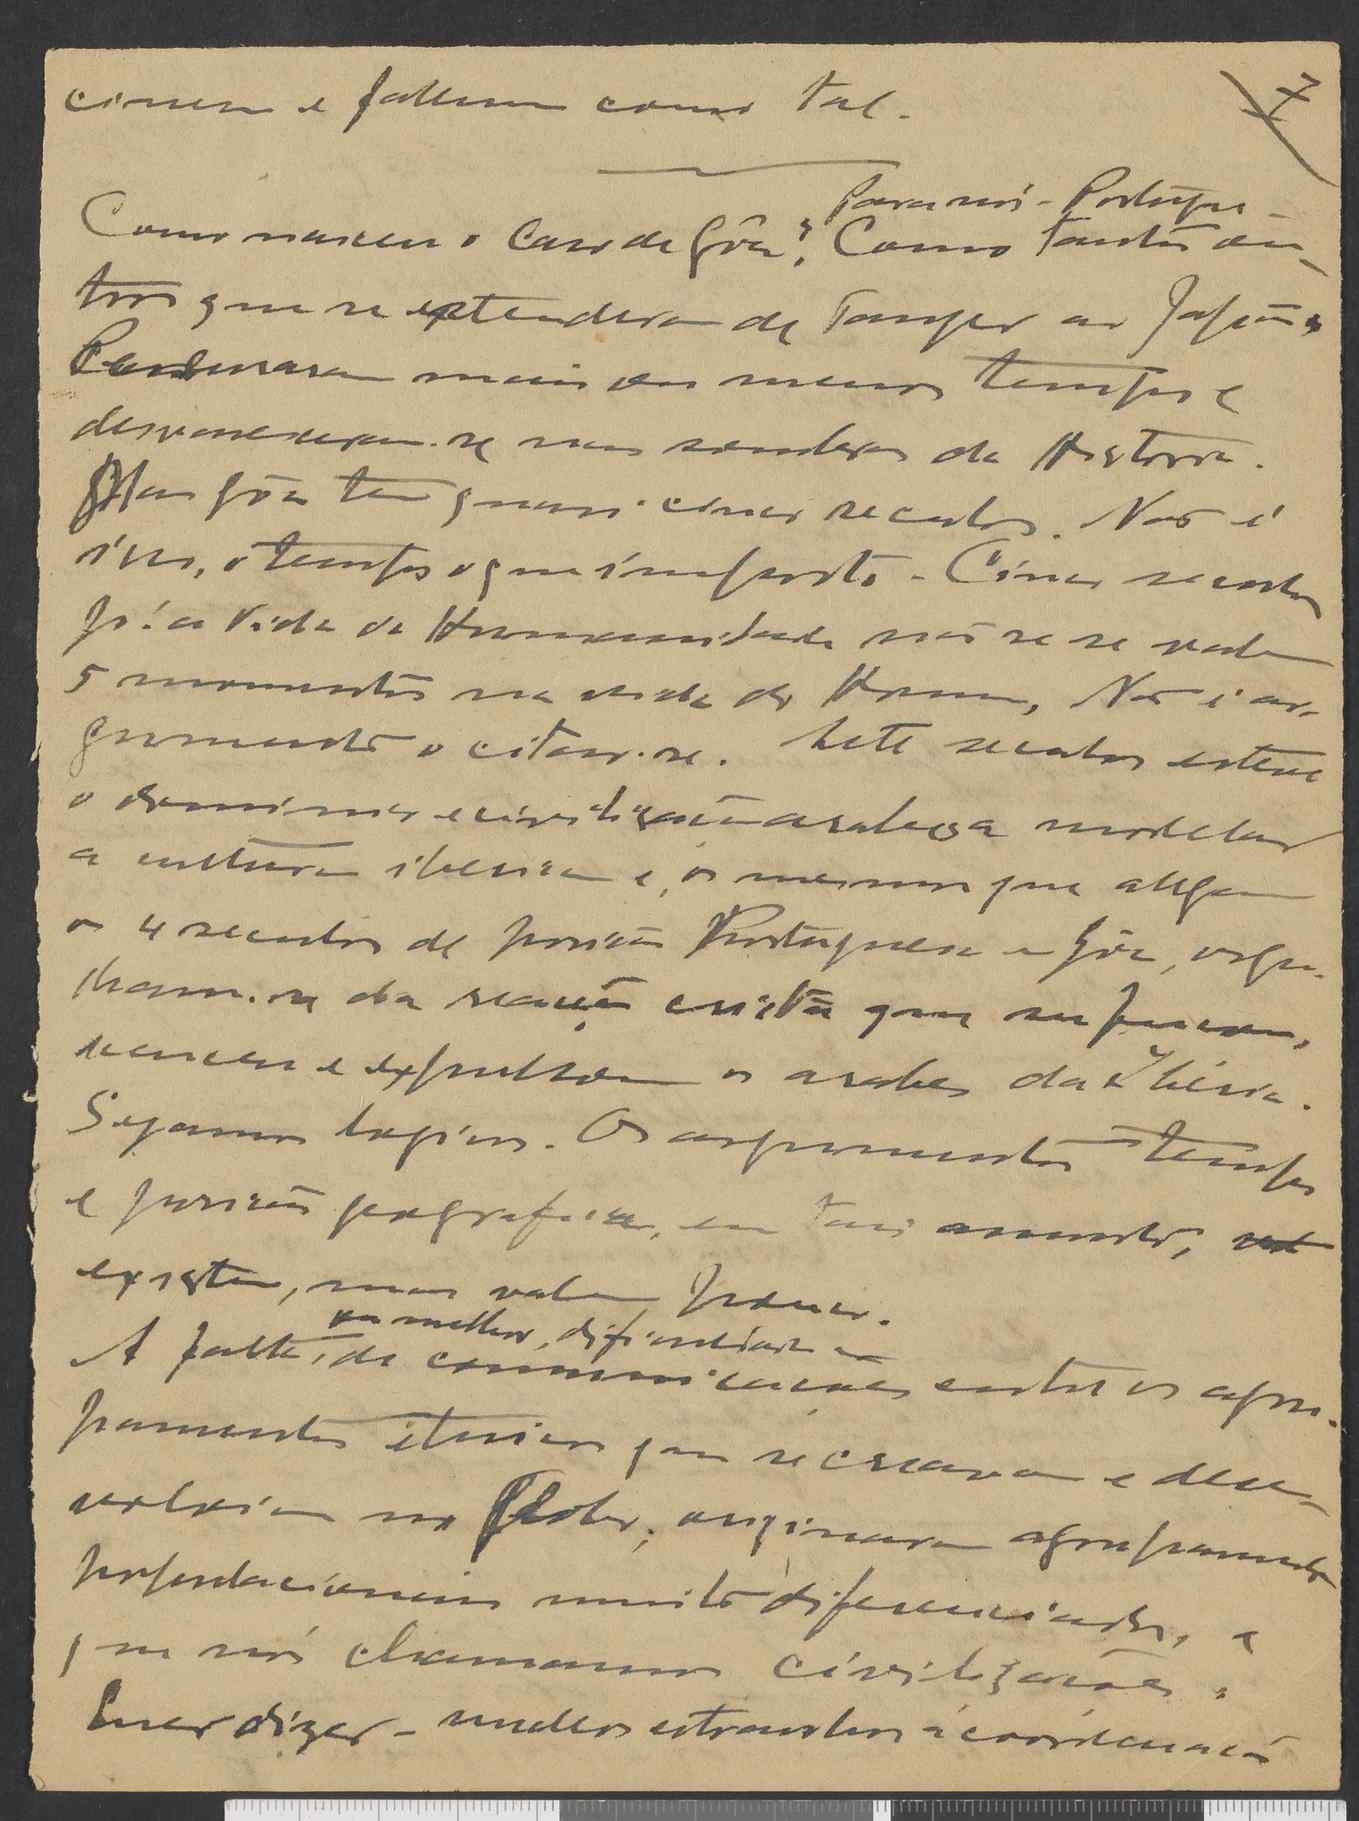 7
e fallem como tal.
Para nós - Portugue-
Como nasceu o Caso de Gôa? Como tantos ou-
tros que se extenderam de Tanger ao Japão.
Perduraram mais ou menos tempo e
desvaneceram-se nas sombras da Historia.
Mas Gôa tem quasi cinco seculos. Não é
isso, o tempo o que importa. Cinco seculos
p.ª a Vida da Humanidade não se se valem
5 momentos na vida do Homem. Não é ar-
gumento o citar-se. Sete seculos esteve
o dominio e civilização arabega a modelar
a cultura iberica e, os mesmos que alegam
os 4 seculos de posição Portuguesa em Gôa, orgu-
lham-se da reacção cristã que
venceu e expulsou os arabes da Ibéria.
Sejamos logicos. Os argumentos tempo
e posição geografica, em tais assuntos,
existem, mas valem pouco.
ou melhor, dificuldade em
A falta, de communicações entre os agru-
pamentos étnicos que se creavam e desen-
volviam no Globo, originaram agrupamentos
populacionais muito diferenciados, a
que nós chamamos civilizações.
Quer dizer - nucleos estranhos á coordenação